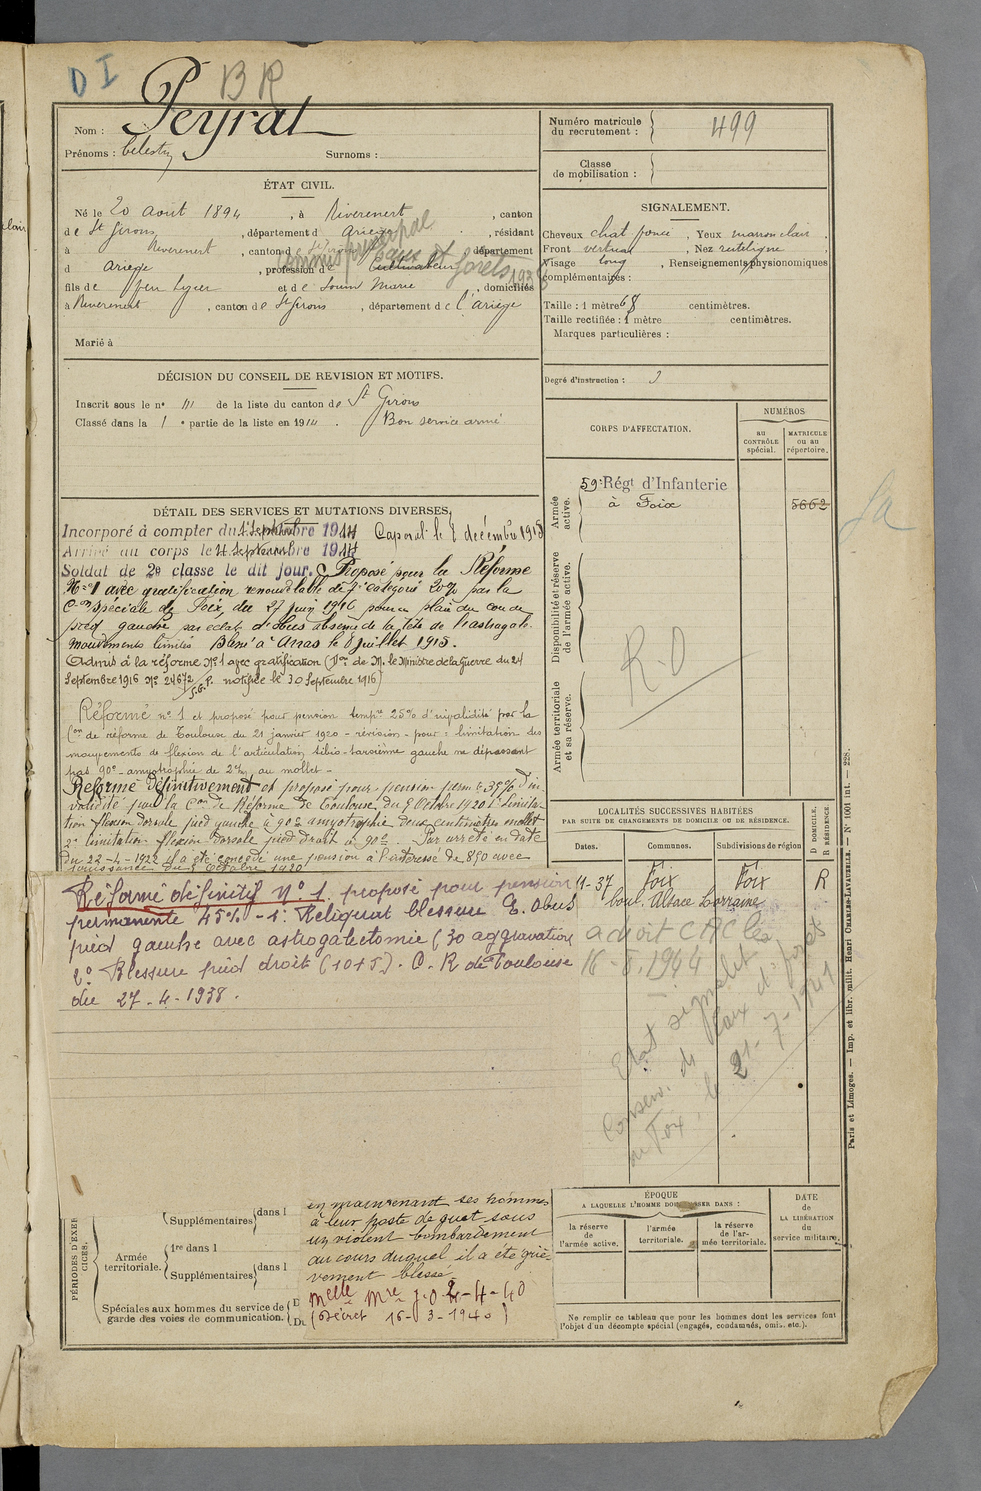 D I
BR
Nom : Peyrat
Prénoms : Celestin Surnoms :
Numéro matricule du recrutement : 499
Classe de mobilisation :
ÉTAT CIVIL.
Né le 20 aout 1894, à Riverenert, canton
de St Girons, département d Ariège, résidant
à Riverenert, canton de St Girons, département
d Ariège, profession de Cultivateur
commis principal Eaux et forets 193
fils de feu et de Soum Marie, domiciliés
à Riverenert, canton de St Girons, département de l'ariège
Marié à
SIGNALEMENT.
Cheveux chat foncé, Yeux marron clair
Front vertical, Nez rectiligne
Visage long, Renseignements physionomiques
complémentaires :
Taille : 1 mètre 68 centimètres.
Taille rectifiée : 1 mètre centimètres.
Marques particulières :
Degré d'instruction : 3
DÉCISION DU CONSEIL DE REVISION ET MOTIFS.
Inscrit sous le n° 111 de la liste du canton de St Girons
Classé dans la 1e partie de la liste en 1914. Bon service armé.
CORPS D'AFFECTATION.
NUMÉROS
AU CONTRÔLE spécial.
MATRICULE OU AU répertoire.
Armée active.
59e Régt d'Infanterie
à Foix
5662
Disponibilité et réserve de l'armée active.
R.O
Armée territoriale et sa réserve.
DÉTAIL DES SERVICES ET MUTATIONS DIVERSES.
Incorporé à compter du Septembre 1914 Caporal le 2 décembre 1915
Arrivé au corps le Septembre 1914
Soldat de 2e classe le dit jour. Proposé pour la Réforme
N° 1 avec gratification renouvelable de catégorie 20% par la
Con spéciale de Foix, du 27 juin 1916 pour plaie du cou de
pied gauche par éclats d'obus absence de la tête de l'astragale.
mouvements limités Blessé à Arras le 6 juillet 1915.
Admis à la réforme N° 1 avec gratification (Don de M. le Ministre de la Guerre du 24
Septembre 1916 N° 24672 notifiée le 30 Septembre 1916)
Réformé n° 1 et proposé pour pension tempre 25% d'invalidité par la
Con de réforme de Toulouse du 21 janvier 1920 - révision - pour : limitation des
mouvements de flexion de l'articulation tibio-tarsienne gauche ne dépassant
pas 90° - amyotrophie de 2 % au mollet -
Réformé définitivement et proposé pour pension perm 35% d'in-
validité par la Con de Réforme de Toulouse du 5 Octobre 1920 1° limita-
tion flexion dorsale pied gauche à 90° amyotrophie deux centimètres mollet
2° limitation flexion dorsale pied droit à 90°. Par arrêté en date
du 22-4-1922 il a été concédé une pension à l'intéressé de 850 avec
jouissance du 5 Octobre 1920
Réformé définitif N° 1 proposé pour pension
permanente 45% - 1° Reliquat blessure E. Obus
pied gauche avec astragalectomie (30 aggravation
2° Blessure pied droit (10+5). C. R de Toulouse
du 27-4-1938.
LOCALITÉS SUCCESSIVES HABITÉES
PAR SUITE DE CHANGEMENTS DE DOMICILE OU DE RÉSIDENCE.
Dates. Communes. Subdivisions de région D DOMICILE. R RÉSIDENCE
11-37 Foix Foix R
boul. Alsace Lorraine
a droit CAC le
16-5.1944
Etat signalet
Conserv. des Eaux et forêts
Foix, le 21-7-1941
PÉRIODES D'EXERCICES.
Supplémentaires dans l
Armée territoriale.
1re dans l
Supplémentaires dans l
Spéciales aux hommes du service de garde des voies de communication.
en maintenant ses hommes
à leur poste de guet sous
un violent bombardement
au cours duquel il a été griè-
vement blessé
Melle Mre J.O 2-4-40
(Décret 16-3-1940)
ÉPOQUE
A LAQUELLE L'HOMME DOIT PASSER DANS :
la réserve de l'armée active.
l'armée territoriale.
la réserve de l'armée territoriale.
DATE de LA LIBÉRATION du service militaire.
Ne remplir ce tableau que pour les hommes dont les services font
l'objet d'un décompte spécial (engagés, condamnés, omis, etc.).
Paris et Limoges. — Imp. et libr. milit. Henri CHARLES-LAVAUZELLE. — N° 1001 int. — 228.